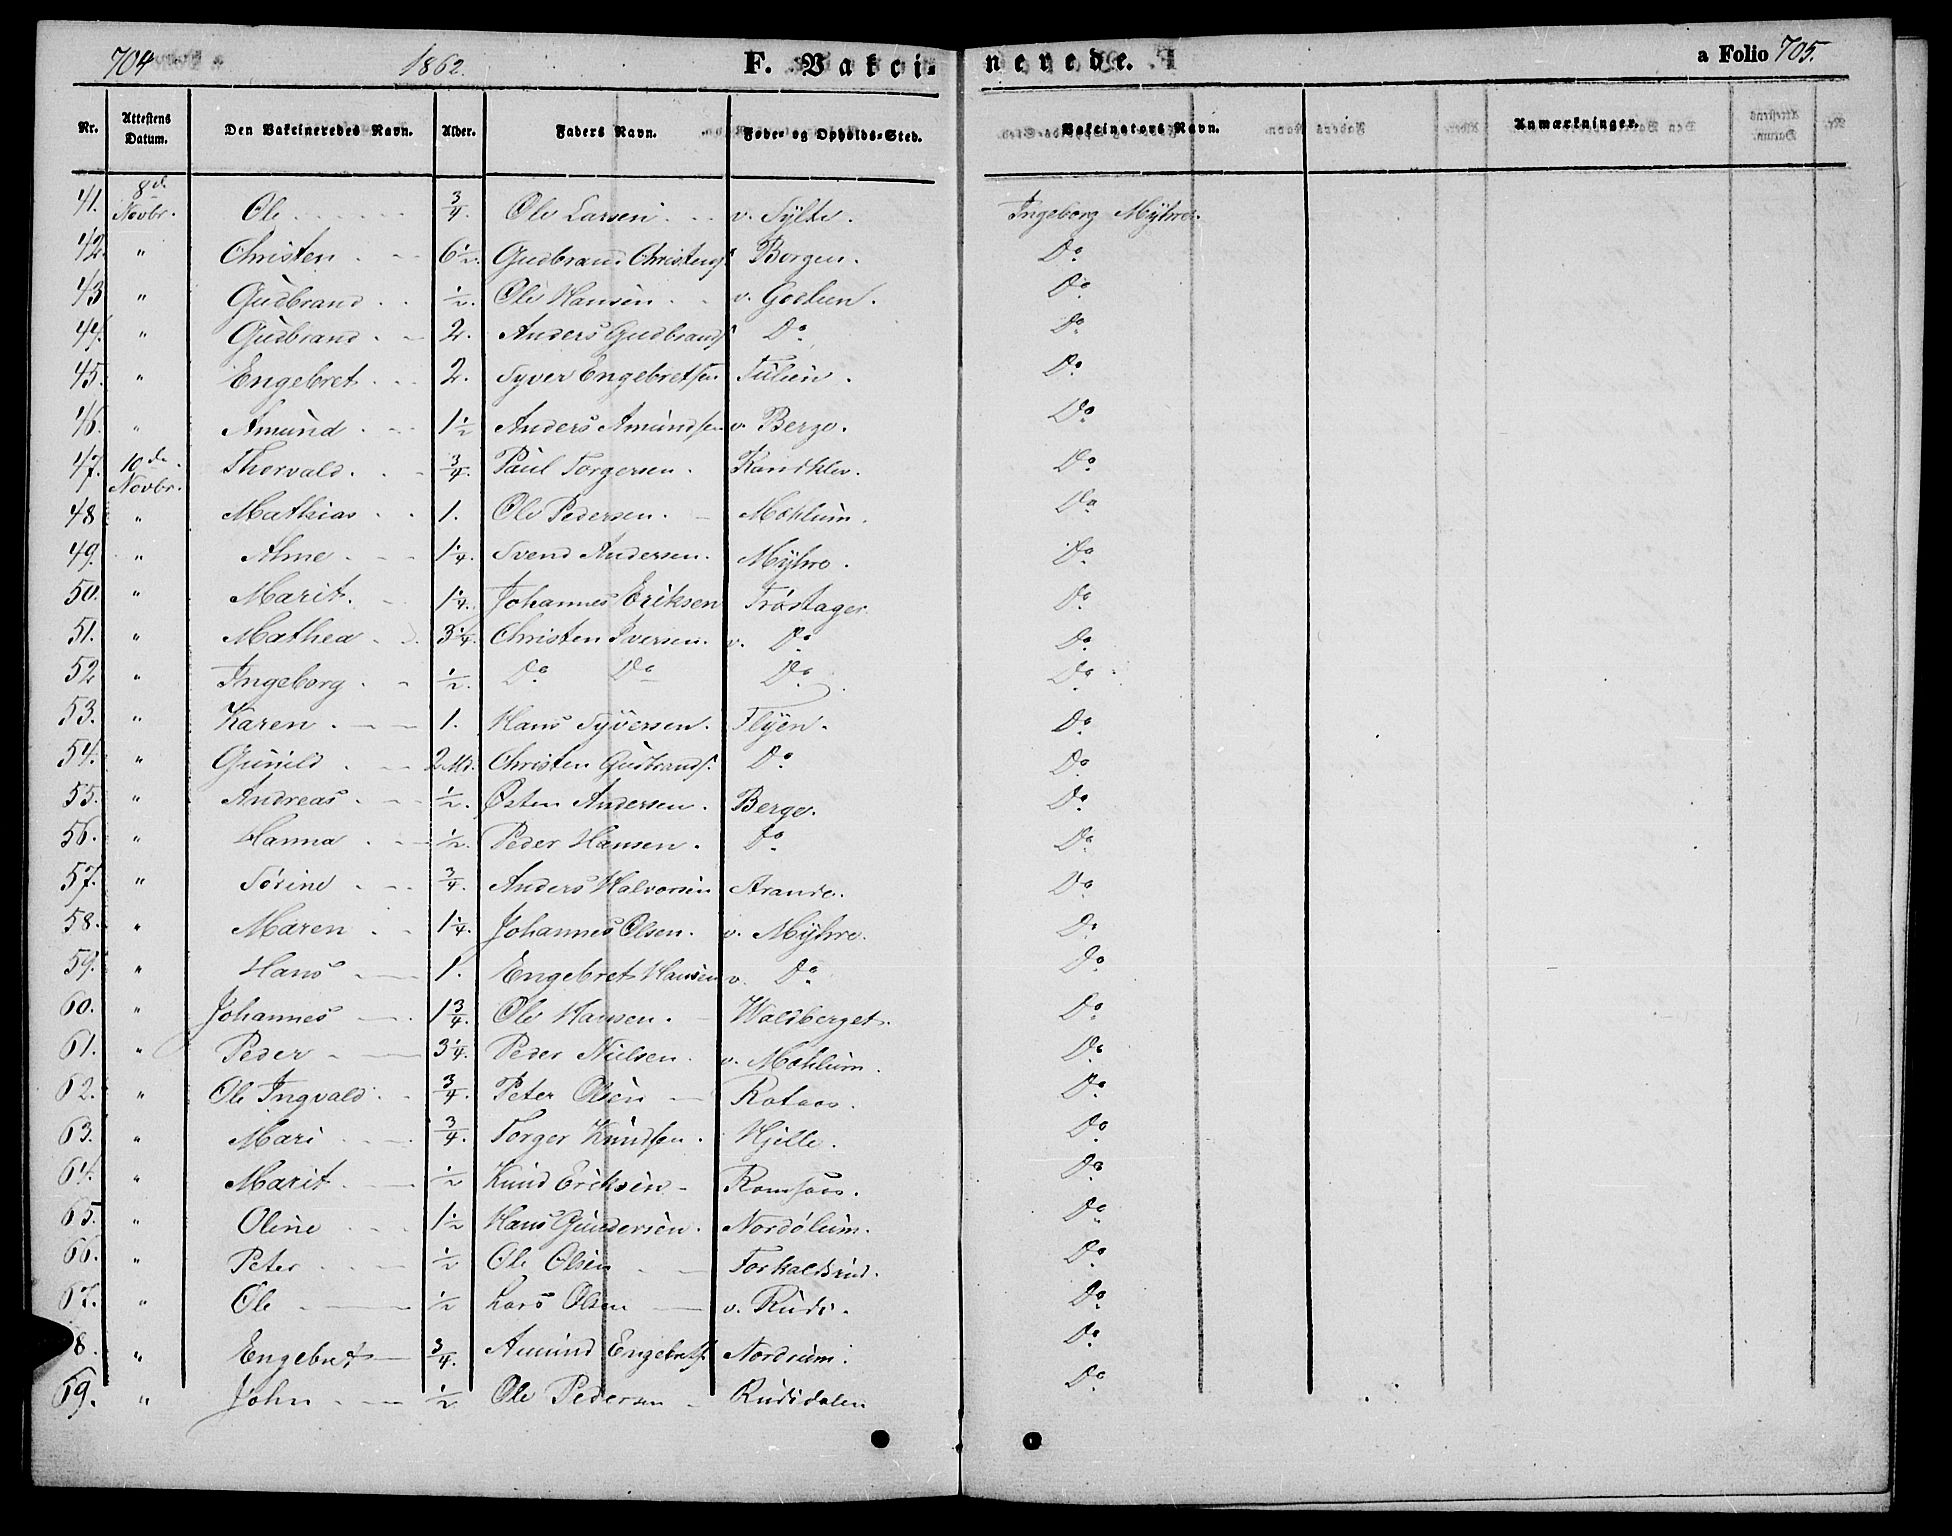 704 1862. F. Vakci- nerede. a Folio 705.
Nr. Attestens Datum. Den Vakcineredes Navn. Alder. Faders Navn. Føde- og Opholds-Sted. Vakcinators Navn. Anmærkninger.
41. 8de Novbr. Ole 3/4. Ole Larsen v. Sylte. Ingeborg Myhre.
42. " Christen 6 1/2. Gudbrand Christens. Borgen. Do
43 " Gudbrand 1/2. Ole Hansen v. Godlien. Do
44. " Gudbrand 2. Anders Gudbrands. Do Do
45. " Engebret 2. Syver Engebretsen Tulien. Do
46. " Amund 1 1/2 Anders Amundsen v. Berge. Do
47. 10de Novbr. Thorvald 3/4. Paul Torgersen. Kandklev. Do
48 " Mathias 1. Ole Pedersen. Mohlum. Do
49. " Alme 1 1/4. Svend Andersen. Myhre. Do
50. " Marit. 1 1/4. Johannes Eriksen Trøstager. Do
51. " Mathea 3 1/4. Christen Iversen. v. Do Do
52 " Ingeborg 1/2. Do Do Do Do
53. " Karen 1. Hans Syversen. Flyen. Do
54. " Gunild 2 Md. Christen Gudbrands. Do Do
55. " Andreas 1/2. Østen Andersen. Berge. Do
56. " Hanna 1/2. Peder Hansen. Do Do
57. " Sørine 3/4. Anders Halvorsen Strande. Do
58. " Maren 1 1/4. Johannes Olsen. v. Myhre. Do
59. " Hans 1. Engebret Hansen v. Do Do
60. " Johannes 1 3/4. Ole Hansen. Waldberget. Do
61. " Peder 3 1/4. Peder Nielsen. v. Mohlum. Do
62. " Ole Ingvald 3/4. Peter Olsen Rotaas. Do
63. " Mari 3/4. Torger Knudsen. Hjelle. Do
64. " Marit 1/2 Knud Eriksen Romsaas. Do
65. " Oline 1 1/2 Hans Gundersen. Nordølum. Do
66. " Peter 1/2 Ole Olsen Torkaldsrud. Do
67. " Ole 1/2 Lars Olsen v. Rudi. Do
8. " Engebret 3/4. Amund Engebrets. Nordrum. Do
69. " John 1/2 Ole Pedersen Rudidalen Do